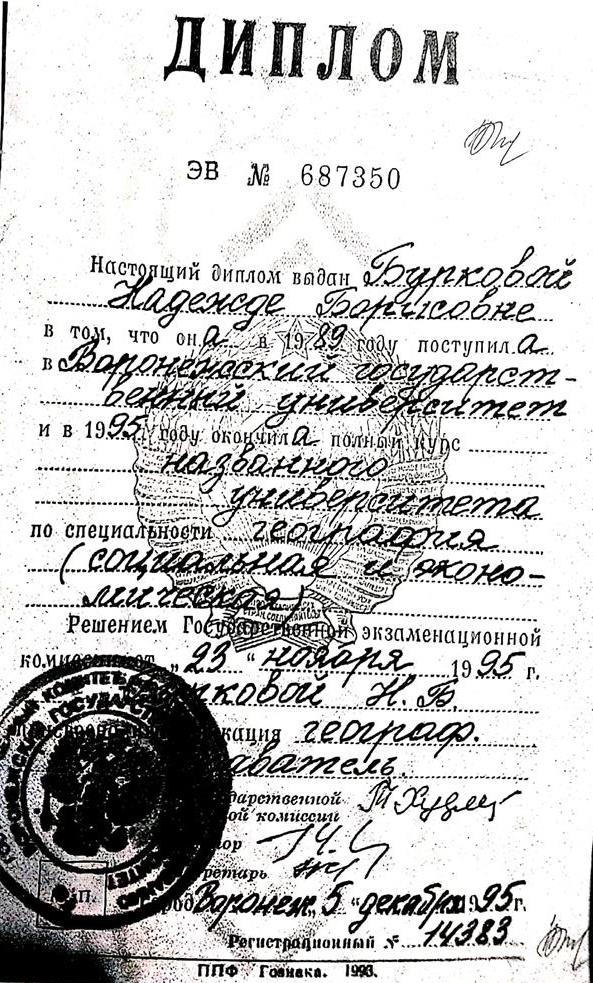 ДИПЛОМ
ЭВ № 687350
Настоящий диплом выдан Бурковой
Надежде Борисовне
в том, что она в 1989 году поступила
в Воронежский государст-
венный университет
и в 1995 году окончила полный курс
названного
университета
по специальности география
(социальная и эконо-
мическая)
Решением Государственной экзаменационной
комиссии от „23“ ноября 1995 г.
ковой Н.Б.
кация географ.
ватель.
дарственной
ой комиссии
ор
ретарь
М.П.
город Воронеж, 5 “декабря 1995г.
Регистрационный № 14383
ППФ Гознака. 1993.